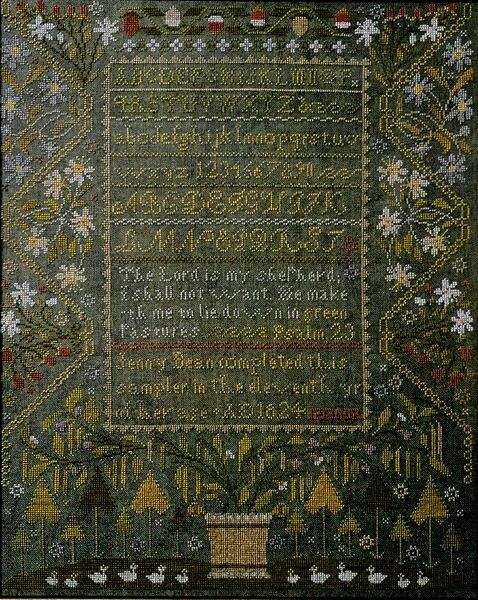 ABCDEFGHIJKLMNOP
RSTUVWXYZ
abcdefghijklmnopqrstuv
wxyz 1234567890
ABCDEFGHIJK
LMNOPQRST
The Lord is my shepherd,
I shall not want. He make
th me to lie down in green
Pastures Psalm 23
Jenny Bean completed this
sampler in the eleventh yr
of her age AD 1824